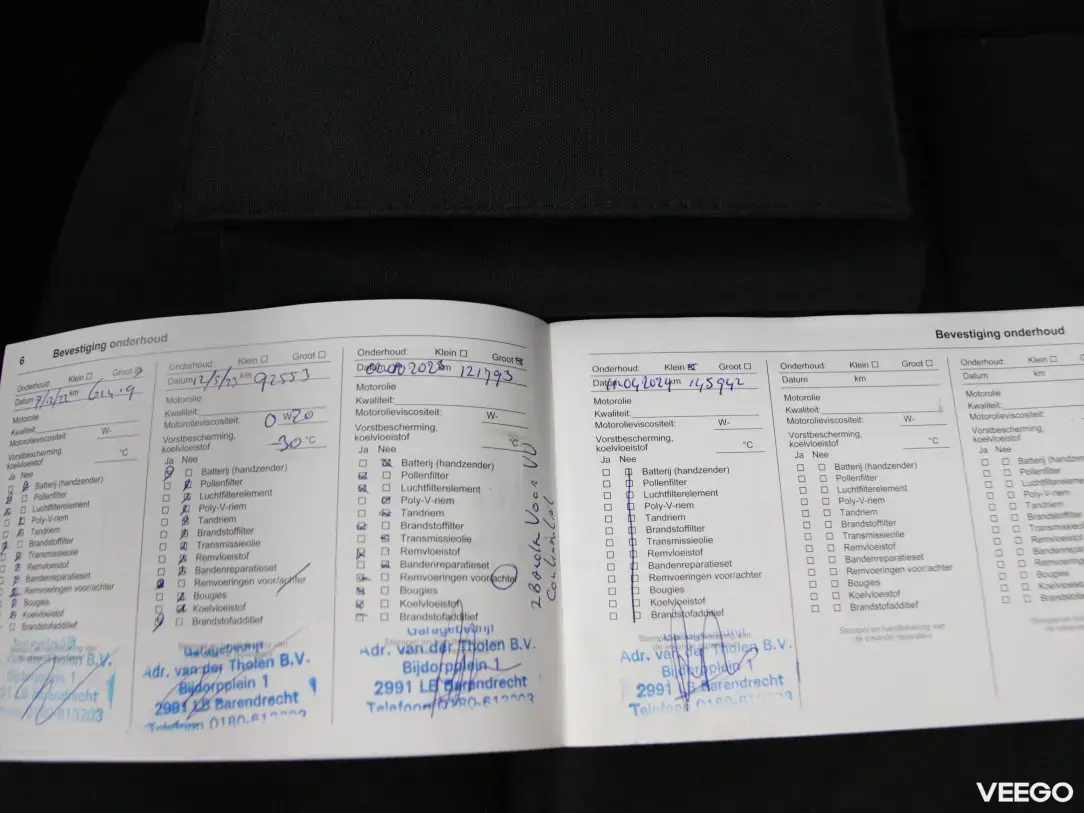 6 Bevestiging onderhoud
Onderhoud: Klein Groot
Datum 7/12/22 km
Motorolie
Kwaliteit:
Motorolieviscositeit: W-
Vorstbescherming,
koelvloeistof °C
Ja Nee
Batterij (handzender)
Pollenfilter
Luchtfilterelement
Poly-V-riem
Tandriem
Brandstoffilter
Transmissieolie
Remvloeistof
Bandenreparatieset
Remvoeringen voor/achter
Bougies
Koelvloeistof
Brandstofadditief
Onderhoud: Klein Groot
Datum 12/5/23 km 92553
Motorolie
Kwaliteit:
Motorolieviscositeit: 0 W-20
Vorstbescherming,
koelvloeistof -30 °C
Ja Nee
Batterij (handzender)
Pollenfilter
Luchtfilterelement
Poly-V-riem
Tandriem
Brandstoffilter
Transmissieolie
Remvloeistof
Bandenreparatieset
Remvoeringen voor/achter
Bougies
Koelvloeistof
Brandstofadditief
Adr. van der Tholen B.V.
Bijdorpplein 1
2991 LB Barendrecht
Telefoon 0180-613203
Onderhoud: Klein Groot
2023 km 121793
Motorolie
Kwaliteit:
Motorolieviscositeit: W-
Vorstbescherming,
koelvloeistof °C
Ja Nee
Batterij (handzender)
Pollenfilter
Luchtfilterelement
Poly-V-riem
Tandriem
Brandstoffilter
Transmissieolie
Remvloeistof
Bandenreparatieset
Remvoeringen voor/achter
Bougies
Koelvloeistof
Brandstofadditief
Adr. van der Tholen B.V.
Bijdorpplein 1
2991 LB Barendrecht
Telefoon 0180-613203
Bevestiging onderhoud
Onderhoud: Klein Groot
Datum 04 2024 km 145942
Motorolie
Kwaliteit:
Motorolieviscositeit: W-
Vorstbescherming,
koelvloeistof °C
Ja Nee
Batterij (handzender)
Pollenfilter
Luchtfilterelement
Poly-V-riem
Tandriem
Brandstoffilter
Transmissieolie
Remvloeistof
Bandenreparatieset
Remvoeringen voor/achter
Bougies
Koelvloeistof
Brandstofadditief
Adr. van der Tholen B.V.
Bijdorpplein 1
2991 LB Barendrecht
Telefoon 0180-613203
Onderhoud: Klein Groot
Datum km
Motorolie
Kwaliteit:
Motorolieviscositeit: W-
Vorstbescherming,
koelvloeistof °C
Ja Nee
Batterij (handzender)
Pollenfilter
Luchtfilterelement
Poly-V-riem
Tandriem
Brandstoffilter
Transmissieolie
Remvloeistof
Bandenreparatieset
Remvoeringen voor/achter
Bougies
Koelvloeistof
Brandstofadditief
Stempel en handtekening van
de erkende reparateur
Onderhoud: Klein
Datum km
Motorolie
Kwaliteit:
Motorolieviscositeit:
Vorstbescherming,
koelvloeistof
Ja Nee
Pollenfilter
Poly-V-riem
Tandriem
Bougies
VEEGO